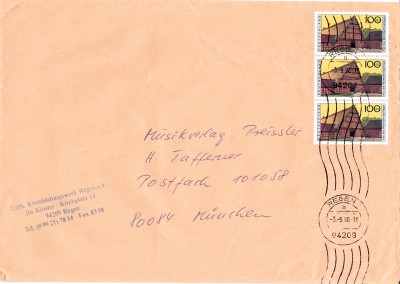 100
100
100
REGEN
94209
Musikverlag Preissler
H. Tafferner
Postfach 101058
80084 München
Kath. Kreisbildungswerk Regen e.V.
Im Kloster - Kirchplatz
94209 Regen
Tel. Fax
REGEN
94209